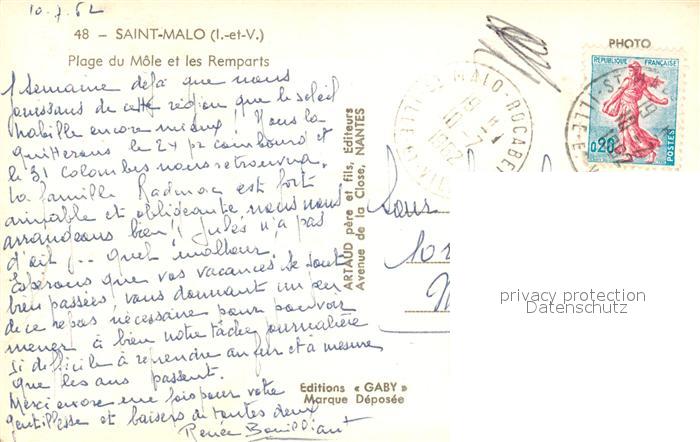 10.7.62
48 – SAINT-MALO (I.-et-V.)
Plage du Môle et les Remparts
1 semaine déjà que nous
jouissons de cette région que le soleil
habille encore mieux! Nous la
quitterons le 24 pr Combourg et
le 31 Colombes nous retrouvera.
La famille est fort
aimable et obligeante, nous nous
arrangeons bien! Jules n'a pas
d'ait... quel malheur!
Espérons que vos vacances se sont
bien passées, vous donnant un peu
de ce repos nécessaire pour pouvoir
mener à bien notre tâche journalière
si difficile à reprendre au fur et à mesure
que les ans passent.
Merci encore une fois pour votre
gentillesse et baisers de toutes deux
Renée
ARTAUD père et fils, Editeurs
Avenue de la Close, NANTES
Editions « GABY »
Marque Déposée
PHOTO
REPUBLIQUE FRANÇAISE
0,20
POSTES
ST-MALO-ROCABEY
ILLE-ET-V
10-7
1962
privacy protection
Datenschutz